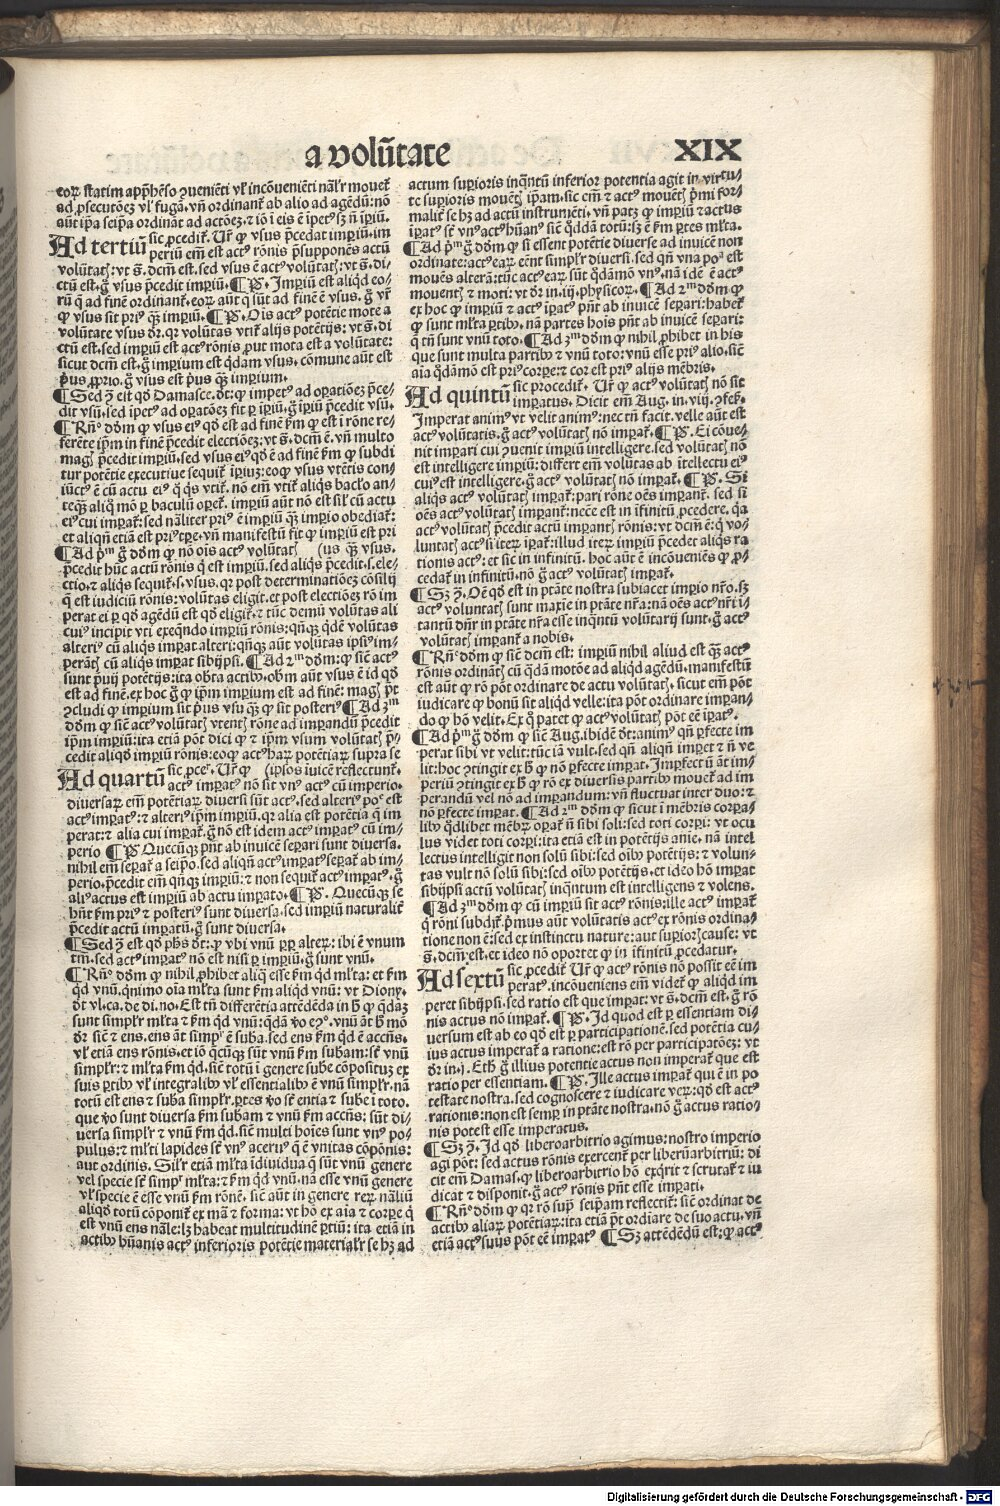 a volūtate XIX
eoꝝ statim apprehēso ꝯueniēti vľ incōueniēti nāľr mouet᷑
ad ꝓsecutōez vľ fugā. vn̄ ordinant᷑ ab alio ad agēdū: nō
aūt ip̄a seip̄a ordināt ad actōeꝫ. ⁊ iō ī eis ē īpetꝰ sꝫ n̄ īpiū.
Ad tertiū sic ꝓcedit᷑. Ur̄ ꝙ vsus p̄cedat imꝑiū. im
periū em̄ est actꝰ rōnis p̄supponēs actū
voluntatꝭ: vt ſ. dcm̄ est. sed vsus ē actꝰ volūtatꝭ: vt ſ. di
ctū est. g̊ vsus p̄cedit imꝑiū. ¶ P̄. Imꝑiū est aliqd eo
rū q̄ ad finē ordinant᷑. eoꝝ aūt q̄ sūt ad finē ē vsus. g̊ vr̄
ꝙ vsus sit priꝰ qꝫ imꝑiū. ¶ P̄. Oīs actꝰ potētie mote a
volūtate vsus dr̄. qꝛ volūtas vtit᷑ alijs potētijs: vt ſ. di
ctū est. sed imꝑiū est actꝰ rōnis ꝓut mota est a volūtate:
sicut dcm̄ est. g̊ imꝑium est q̄dam vsus. cōmune aūt est
p̄us ꝓprio. g̊ vsus est p̄us qꝫ imꝑium.
¶ Sed ꝯ̄ est qd̄ Damasce. dt̄: ꝙ impetꝰ ad oꝑatiōeꝫ p̄ce
dit vsū. sed īpetꝰ ad oꝑatōeꝫ fit ꝑ īꝑiū. g̊ īꝑiū p̄cedit vsū.
¶ Rn̄º dd̄m ꝙ vsus eiꝰ qd̄ est ad finē ẜm ꝙ est ī rōne re
ferēte ip̄m in finē p̄cedit electiōeꝫ: vt ſ. dcm̄ ē. vn̄ multo
magꝭ p̄cedit imꝑiū. sed vsus eiꝰ qd̄ ē ad finē ẜm ꝙ subdi
tur potētie executiue sequit᷑ īꝑiuꝫ: eo ꝙ vsus vtētis con
iūctꝰ ē cū actu eiꝰ q̊ q̄s vtit᷑. nō em̄ vtit᷑ aliqs baclo̊ an
teqꝫ aliq̊ mō ꝑ baculū oꝑet᷑. imꝑiū aūt nō est siľ cū actu
eiꝰ cui imꝑat᷑: sed nāliter priꝰ ē imꝑiū qꝫ imꝑio obediat᷑:
et aliqn̄ etiā est priꝰ tꝑe. vn̄ manifestū fit ꝙ imꝑiū est pri
¶ Ad p̄m g̊ dd̄m ꝙ nō oīs actꝰ volūtatꝭ (us qꝫ vsus.
p̄cedit hūc actū rōnis q̄ est imꝑiū. sed aliqs p̄cedit. s. ele
ctio. ⁊ aliqs sequit᷑. s. vsus. qꝛ post determinatiōeꝫ cōsilij
q̄ est iudiciū rōnis: volūtas eligit. et post electiōeꝫ rō im
perat ei ꝑ qd̄ agēdū est qd̄ eligit᷑. ⁊ tūc demū volūtas ali
cuiꝰ incipit vti exeqn̄do imꝑiū rōnis: qn̄qꝫ qdē volūtas
alteriꝰ cū aliqs imꝑat alteri: qn̄qꝫ aūt volūtas ipsiꝰ im
perātꝭ cū aliqs imꝑat sibijpsi. ¶ Ad 2ᵐ dd̄m: ꝙ sic̄ actꝰ
sunt p̄uij potētijs: ita obta actibꝰ. ob̄m aūt vsus ē id qd̄
est ad finē. ex hoc g̊ ꝙ ip̄m imꝑium est ad finē: magꝭ p̄t
ꝯcludi ꝙ imꝑium sit p̄us vsu qꝫ ꝙ sit posteriꝰ ¶ Ad 3ᵐ
dd̄m ꝙ sic̄ actꝰ volūtatꝭ vtentꝭ rōne ad imꝑandū p̄cedit
ip̄m imꝑiū: ita etiā pōt dici ꝙ ⁊ ip̄m vsum volūtatꝭ p̄
cedit aliqd̄ imꝑiū rōnis: eo ꝙ actꝰ haꝝ potētiaꝝ supra se
Ad quartū sic ꝓceᵗ. Ur̄ ꝙ (ip̄sos īuicē reflectunt᷑.
actꝰ imꝑatꝰ nō sit vnꝰ actꝰ cū imꝑio.
diuersaꝝ em̄ potētiaꝝ diuersi sūt actꝰ. sed alteriꝰ poᵉ est
actꝰ imꝑatꝰ: ⁊ alteriꝰ ip̄m imꝑiū. qꝛ alia est potētia q̄ im
perat: ⁊ alia cui imꝑat᷑. g̊ nō est idem actꝰ imꝑatꝰ cū im
perio ¶ P̄. Quecūqꝫ pn̄t ab īuicē seꝑari sunt diuersa.
nihil em̄ seꝑat᷑ a seip̄o. sed aliqn̄ actꝰ imꝑatꝰ seꝑat᷑ ab im
perio. p̄cedit em̄ qn̄qꝫ imꝑiū: ⁊ non sequit᷑ actꝰ imꝑatꝰ. g̊
aliꝰ actus est imꝑiū ab actu imꝑato. ¶ P̄. Quecūqꝫ se
hn̄t ẜm priꝰ ⁊ posteriꝰ sunt diuersa. sed imꝑiū naturalit᷑
p̄cedit actū imꝑatū. g̊ sunt diuersa.
¶ Sed ꝯ̄ est qd̄ ph̄s dt̄: ꝙ vbi vnū ꝓpꝉ alteꝝ: ibi ē vnum
tm̄. sed actꝰ imꝑatꝰ nō est nisi ꝑ imꝑiū. g̊ sunt vnū.
¶ Rn̄º dd̄m ꝙ nihil ꝓhibet aliq̄ esse ẜm qd mľta: et ẜm
qd vnū. qnimo oīa mľta sunt ẜm aliqd vnū: vt Diony.
dt̄ vľ. ca. de di. no. Est tn̄ differētia attēdēda in h̊ ꝙ q̄daꝫ
sunt simplr̄ mľta ⁊ ẜm qd vnū: q̄dā v̊o eꝯº. vnū āt h̊ mō
dr̄ sic̄ ⁊ ens. ens āt simprꝰ ē suba. sed ens ẜm qd ē accn̄s.
vľ etiā ens rōnis. et iō qc̄ūqꝫ sūt vnū ẜm subam: st̄ vnū
simplr̄: ⁊ mľta ẜm qd. sic̄ totū ī genere sube cōpositūꝫ ex
suis ꝑtibꝰ vľ integralibꝰ vľ essentialibꝰ ē vnū simplr̄. nā
totū est ens ⁊ suba simplr̄. ꝑtes v̊o st̄ entia ⁊ sube ī toto.
que v̊o sunt diuersa ẜm subam ⁊ vnū ẜm accn̄s: sūt di
uersa simplr̄ ⁊ vnū ẜm qd. sic̄ multi hoīes sunt vnꝰ po
pulus: ⁊ mľti lapides st̄ vnꝰ aceruꝰ q̄ ē vnitas cōpōnis:
aut ordinis. Silr̄ etiā mľta īdiuidua q̄ sūt vnū genere
vel specie st̄ simprꝰ mľta: ⁊ ẜm qd vnū. nā esse vnū genere
vľ specie ē esse vnū ẜm rōnē. sic̄ aūt in genere reꝝ nāliū
aliqd̄ totū cōponit᷑ ex mā ⁊ forma: vt hō ex aīa ⁊ corꝑe q̄
est vnū ens nāle: lꝫ habeat multitudinē ꝑtiū: ita etiā in
actibꝰ hūanis actꝰ inferioris potētie materialr̄ se hꝫ ad
actum suꝑioris inqn̄tū inferior potentia agit in virtu
te suꝑioris mouētꝭ ip̄am. sic em̄ ⁊ actꝰ mouētꝭ p̄mi for
malit᷑ se hꝫ ad actū instrumēti. vn̄ patꝫ ꝙ imꝑiū ⁊ actus
īꝑatꝰ st̄ vnꝰ actꝰ hūanꝰ sic̄ q̄ddā totū: sꝫ ē ẜm ꝑtes mľta.
¶ Ad p̄m g̊ dd̄m ꝙ si essent potētie diuerse ad inuicē non
ordinate: actꝰ eaꝝ eēnt simplr̄ diuersi. sed qn̄ vna poᵃ est
mouēs alterā: tūc actꝰ eaꝝ sūt qdāmō vnꝰ. nā idē ē actꝰ
mouentꝭ ⁊ moti: vt dr̄ in. iij. physicoꝝ. ¶ Ad 2ᵐ dd̄m ꝙ
ex hoc ꝙ imꝑiū ⁊ actꝰ īꝑatꝰ pn̄t ab inuicē seꝑari: habet᷑
ꝙ sunt mľta ꝑtibꝰ. nā partes hoīs pn̄t ab īuicē seꝑari:
q̄ tn̄ sunt vnū toto. ¶ Ad 3ᵐ dd̄m ꝙ nihil ꝓhibet in his
que sunt multa partibꝰ ⁊ vnū toto: vnū esse priꝰ alio. sic̄
aīa qdāmō est priꝰ corꝑe: ⁊ cor est priꝰ alijs mēbris.
Ad quintū sic procedit᷑. Ur̄ ꝙ actꝰ volūtatꝭ nō sit
imꝑatus. Dicit em̄ Aug. in. viij. ꝯfeſ.
Imperat animꝰ vt velit animꝰ: nec tn̄ facit. velle aūt est
actꝰ volūtatis. g̊ actꝰ volūtatꝭ nō imꝑat᷑. ¶ P̄. Ei cōue
nit imꝑari cui ꝯuenit imꝑiū intelligere. sed volūtatꝭ nō
est intelligere imꝑiū: differt em̄ volūtas ab ītellectu eiꝰ
cuiꝰ est intelligere. g̊ actꝰ volūtatꝭ nō imꝑat᷑. ¶ P̄. Si
aliqs actꝰ volūtatꝭ imꝑat᷑: pari rōne oēs imꝑant᷑. sed si
oēs actꝰ volūtatꝭ imꝑant᷑: necē est in īfinitū ꝓcedere. qa
actꝰ volūtatꝭ p̄cedit actū imꝑantꝭ rōnis: vt dcm̄ ē: q̄ vo
luntatꝭ actꝰ si iteꝝ īꝑat᷑: illud iteꝝ imꝑiū p̄cedet aliqs ra
tionis actꝰ: et sic in infinitū. hoc aūt ē incōueniēs ꝙ ꝓ
cedat᷑ in infinitū. nō g̊ actꝰ volūtatꝭ imꝑat᷑.
¶ Sꝫ ꝯ̄. Oē qd̄ est in ptāte nostra subiacet imꝑio nr̄o. sꝫ
actꝰ voluntatꝭ sunt maxīe in ptāte nr̄a: nā oēs actꝰ nr̄i ī
tantū dn̄r in ptāte nr̄a esse inqn̄tū volūtarij sunt. g̊ actꝰ
volūtatꝭ imꝑant᷑ a nobis.
¶ Rn̄º dd̄m ꝙ sic̄ dcm̄ est: imꝑiū nihil aliud est qꝫ actꝰ
rōnis ordinātꝭ cū q̄dā motōe ad aliqd agēdū. manifestū
est aūt ꝙ rō pōt ordinare de actu volūtatꝭ. sicut em̄ pōt
iudicare ꝙ bonū sit aliqd velle: ita pōt ordinare imꝑan
do ꝙ hō velit. Ex q̊ patet ꝙ actꝰ volūtatꝭ pōt eē īꝑatꝰ.
¶ Ad p̄m g̊ dd̄m ꝙ sic̄ Aug. ibidē dt̄: animꝰ qn̄ ꝑfecte im
perat sibi vt velit: tūc iā vult. sed qn̄ aliqn̄ imꝑet ⁊ n̄ ve
lit: hoc ꝯtingit ex h̊ ꝙ nō ꝑfecte imꝑat. Imꝑfectū āt im
periū ꝯtingit ex h̊ ꝙ rō ex diuersis partibꝰ mouet᷑ ad im
perandū vel nō ad imꝑandum: vn̄ fluctuat inter duo: ⁊
nō ꝑfecte imꝑat. ¶ Ad 2ᵐ dd̄m ꝙ sicut ī mēbris corꝑa
libꝰ qdlibet mēbꝝ oꝑat᷑ n̄ sibi soli: sed toti corꝑi: vt ocu
lus videt toti corꝑi: ita etiā est in potētijs anīe. nā intel
lectus intelligit non solū sibi: sed oībꝰ potētijs: ⁊ volun
tas vult nō solū sibi: sed oībꝰ potētijs. et ideo hō imꝑat
sibijpsi actū volūtatꝭ inqn̄tum est intelligens ⁊ volens.
¶ Ad 3ᵐ dd̄m ꝙ cū imꝑiū sit actꝰ rōnis: ille actꝰ imꝑat᷑
q̄ rōni subdit᷑. p̄mus aūt volūtatis actꝰ ex rōnis ordina
tione non ē: sed ex instinctu nature: aut suꝑiorꝭ cause: vt
ſ. dcm̄ est. et ideo nō oportet ꝙ in īfinitū ꝓcedatur.
Ad sextū sic ꝓcedit᷑. Ur̄ ꝙ actꝰ rōnis nō possit eē im
peratꝰ. incōueniens em̄ videt᷑ ꝙ aliqd im
peret sibijpsi. sed ratio est que imꝑat: vt ſ. dcm̄ est. g̊ rō
nis actus nō imꝑat᷑. ¶ P̄. Id quod est ꝑ essentiam di
uersum est ab eo qd̄ est ꝑ participationē. sed potētia cu
ius actus imperat᷑ a ratione: est rō per participatōeꝫ: vt
dr̄ in. j. Eth. g̊ illius potentie actus non imperat᷑ que est
ratio per essentiam. ¶ P̄. Ille actus imꝑat᷑ qui ē in po
testate nostra. sed cognoscere ⁊ iudicare veꝝ: qd̄ est actꝰ
rationis: non est semꝑ in ptāte nostra. nō g̊ actus ratio
nis potest esse imperatus.
¶ Sꝫ ꝯ̄. Id qd̄ liberoarbitrio agimus: nostro imperio
agi pōt: sed actus rōnis exercent᷑ per liberūarbitriū: di
cit em̄ Damas. ꝙ liberoarbitrio hō exqrit ⁊ scrutat᷑ ⁊ iu
dicat ⁊ disponit. g̊ actꝰ rōnis pn̄t esse imꝑati.
¶ Rn̄º dd̄m ꝙ qꝛ rō suꝑ seip̄am reflectit᷑: sic̄ ordinat de
actibꝰ aliaꝝ potētiaꝝ: ita etiā p̄t ordīare de suo actu. vn̄
etiā actꝰ suus pōt eē imꝑatꝰ ¶ Sꝫ attēdēdū est: ꝙ actꝰ
Digitalisierung gefördert durch die Deutsche Forschungsgemeinschaft - DFG